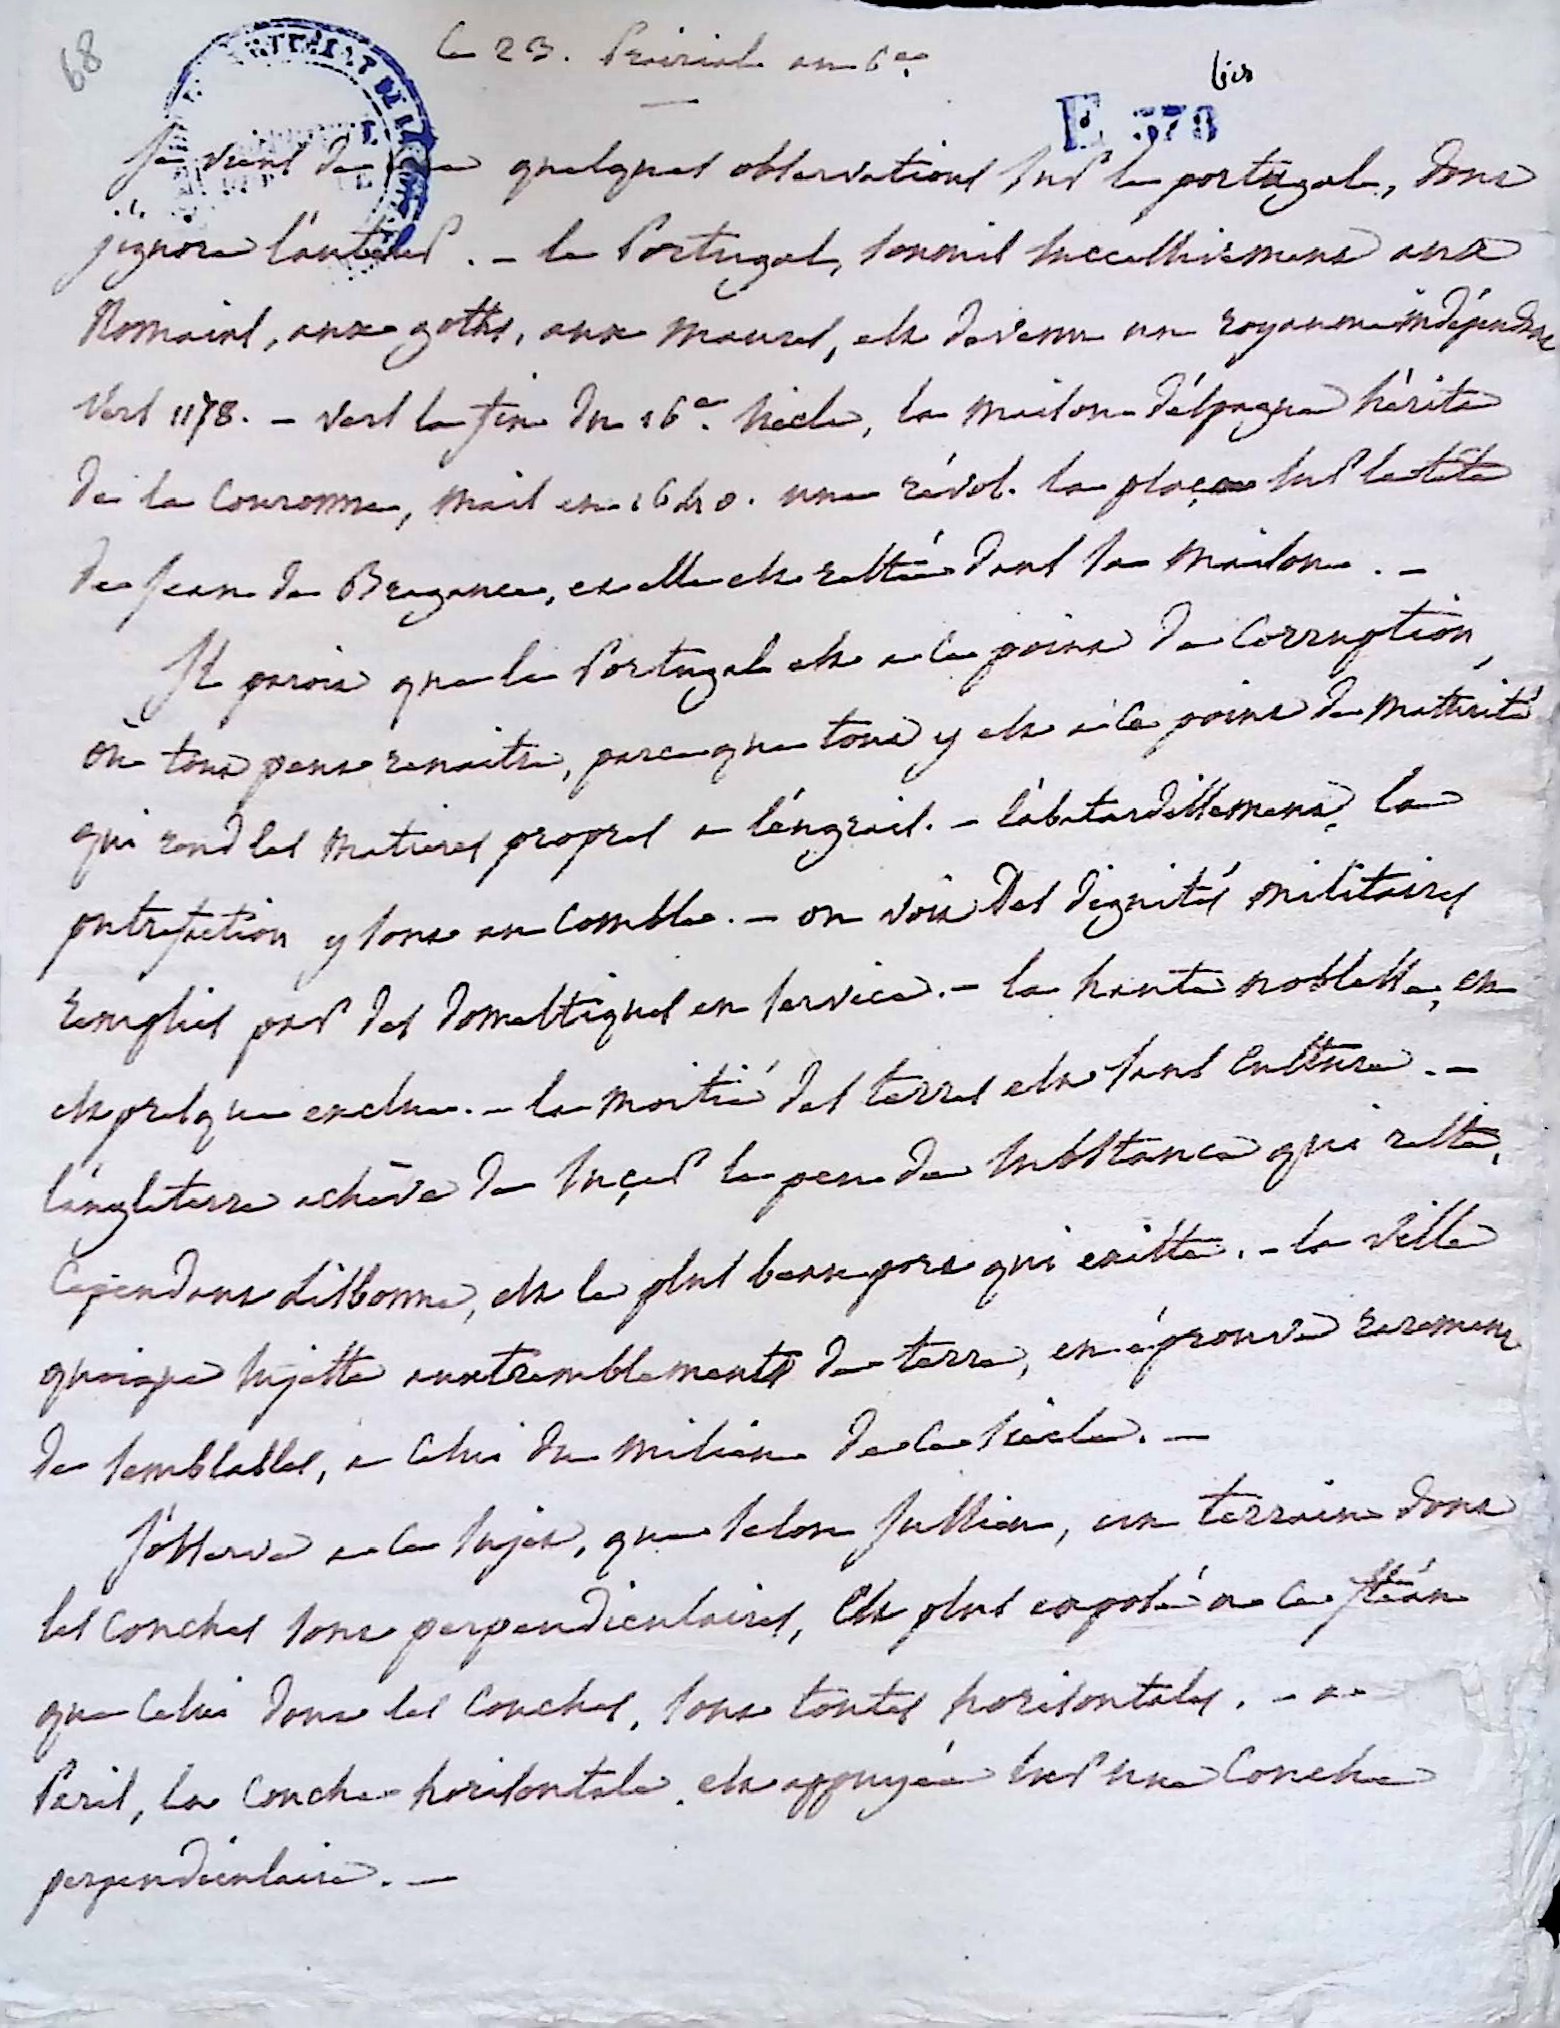 68
le 23. Prairial an 6.e
bis
E 378
Je viens de lire quelques observations sur le portugal, dont
j'ignore l'auteur. - le Portugal, soumis successivement aux
Romains, aux goths, aux maures, est devenu un royaume indépendant
vers 1178. - vers la fin du 16.e siècle, la maison d'éspagne hérita
de la couronne, mais en 1640. une révol. la plaça sur la tête
de Jean de Bragance, et elle est restée dans sa maison. -
Il paroit que le Portugal est a ce point de corruption,
où tout peut renaitre, parce que tout y est a ce point de maturité
qui rend les matieres propres a l'éngrais. - l'abatardissement, la
putrefaction y sont au comble. - on voit des dignités militaires
remplies par des domestiques en service. - la haute noblesse, en
est presque exclue. - la moitié des terres est sans culture. -
l'angleterre achève de suçer le peu de substance qui reste,
Cependant Lisbonne, est le plus beau port qui existe. - la ville
quoique sujette aux tremblements de terre, en éprouve rarement
de semblables, a celui du milieu de ce siècle. -
J'observe a ce sujet, que selon Jullien, un terrain dont
les couches sont perpendiculaires, est plus exposé a ce fléau
que celui dont les couches, sont toutes horisontales. - a
Paris, la couche horisontale, est appuyée sur une couche
perpendiculaire. -